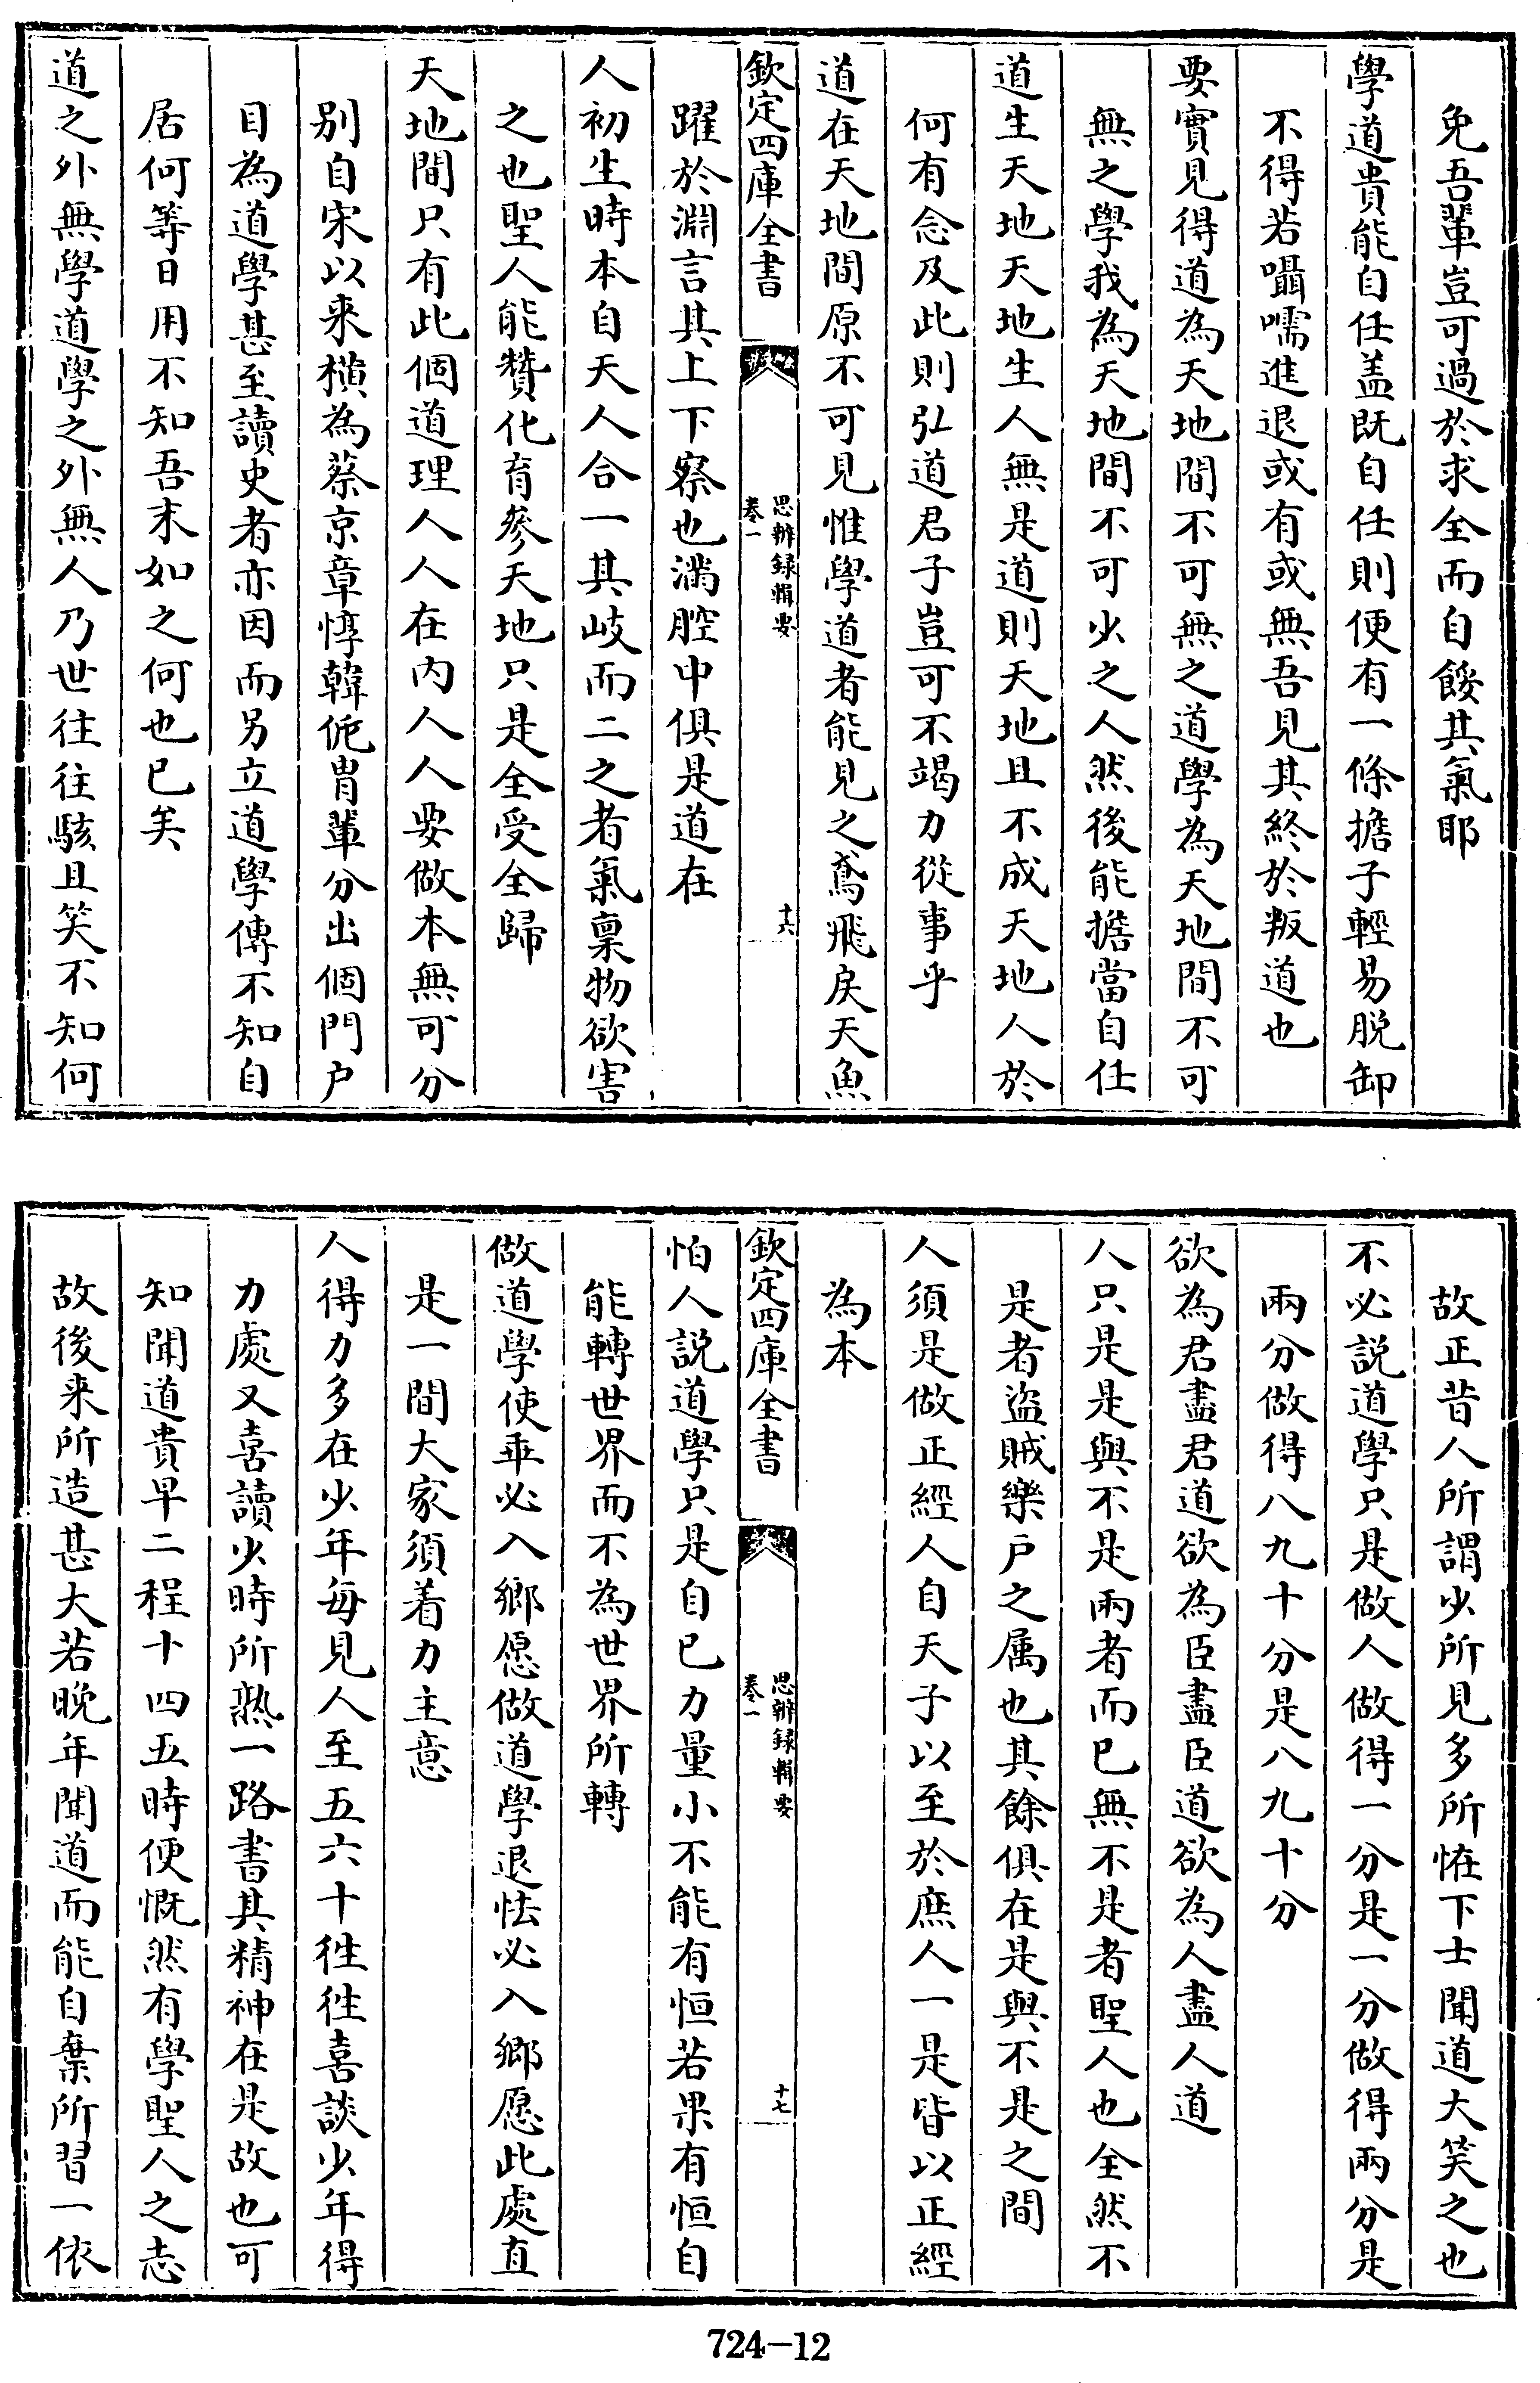 免吾輩豈可過於求全而自餒其氣耶
學道貴能自任盖既自任則便有一條擔子輕易脱卸
不得若囁嚅進退或有或無吾見其終於叛道也
要實見得道為天地間不可無之道學為天地間不可
無之學我為天地間不可少之人然後能擔當自任
道生天地天地生人無是道則天地且不成天地人於
何有念及此則弘道君子豈可不竭力從事乎
道在天地間原不可見惟學道者能見之鳶飛戾天魚
欽定四庫全書
思辨録輯要
卷一
十六
躍於淵言其上下察也滿腔中俱是道在
人初生時本自天人合一其岐而二之者氣稟物欲害
之也聖人能贊化育參天地只是全受全歸
天地間只有此個道理人人在内人人要做本無可分
别自宋以来横為蔡京章惇韓侂胄輩分出個門户
目為道學甚至讀史者亦因而另立道學傳不知自
居何等日用不知吾末如之何也已矣
道之外無學道學之外無人乃世往往駭且笑不知何
故正昔人所謂少所見多所恠下士聞道大笑之也
不必説道學只是做人做得一分是一分做得兩分是
兩分做得八九十分是八九十分
欲為君盡君道欲為臣盡臣道欲為人盡人道
人只是是與不是兩者而已無不是者聖人也全然不
是者盜賊樂户之属也其餘俱在是與不是之間
人須是做正經人自天子以至於庶人一是皆以正經
為本
欽定四庫全書
思辨録輯要
卷一
十七
怕人説道學只是自已力量小不能有恒若果有恒自
能轉世界而不為世界所轉
做道學使乖必入鄉愿做道學退怯必入鄉愿此處直
是一間大家須着力主意
人得力多在少年每見人至五六十徃徃喜談少年得
力處又喜讀少時所熟一路書其精神在是故也可
知聞道貴早二程十四五時便慨然有學聖人之志
故後来所造甚大若晚年聞道而能自棄所習一依
724-12